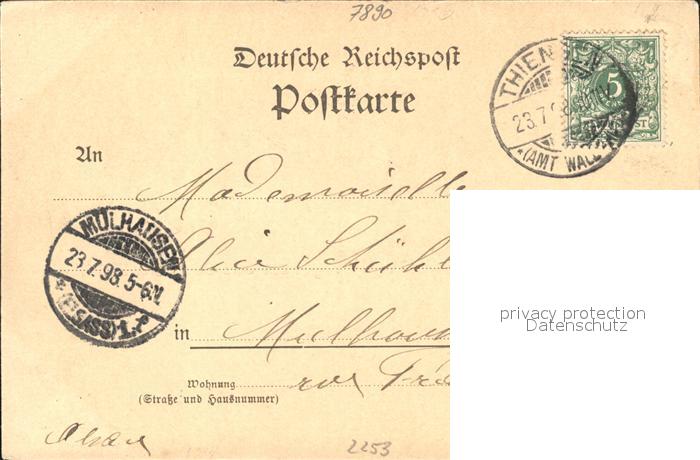 7890
Deutsche Reichspost
Postkarte
THIENGEN
23.7.98
*(AMT WALDSHUT)
5
An
Mademoiselle
Alice
MÜLHAUSEN
23.7.98.5-6N.
*(ELSASS)1.
in Mulhouse
rue
Wohnung
(Straße und Hausnummer)
Alsace
2253
privacy protection
Datenschutz